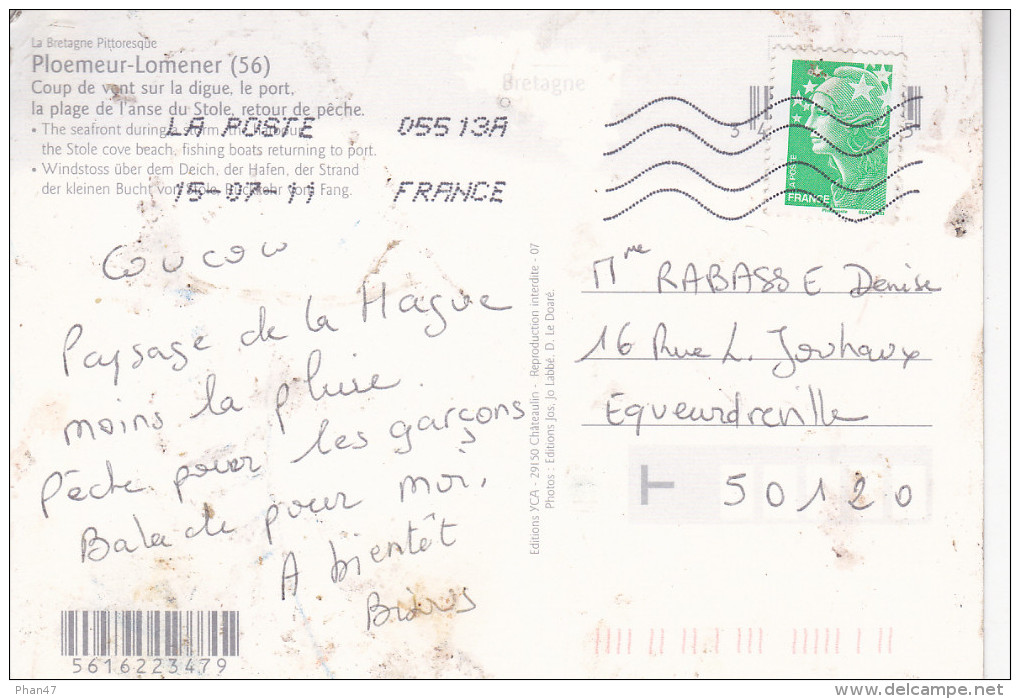 La Bretagne Pittoresque
Ploemeur-Lomener (56)
Coup de vent sur la digue, le port,
la plage de l'anse du Stole, retour de pêche.
• The seafront during a storm, the harbour
the Stole cove beach, fishing boats returning to port.
• Windstoss über dem Deich, der Hafen, der Strand
der kleinen Bucht von Stole, Rückkehr vom Fang.
Bretagne
LA POSTE 05513A
15-07-11 FRANCE
LA POSTE
FRANCE
Coucou
Paysage de la Hague
moins la pluie.
Pêche pour les garçons
Balade pour moi,
A bientôt
Editions YCA - 29150 Châteaulin - Reproduction interdite - 07
Photos : Editions Jos, Jo Labbé, D. Le Doaré.
Mme RABASSE Denise
16 Rue L. Jouhaux
Equeurdreville
50120
5616223479
Phan47
delcampe.net